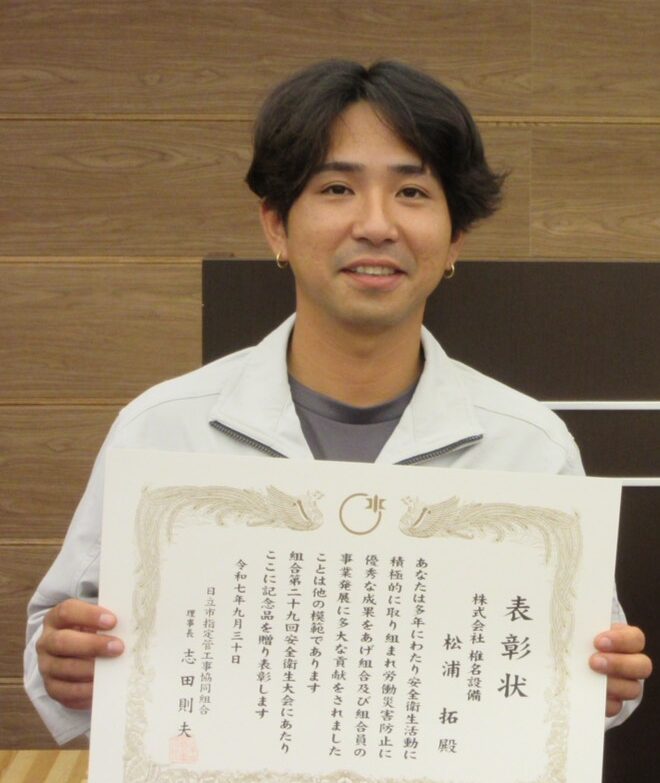 表彰状
株式会社 椎名設備
松浦 拓 殿
あなたは多年にわたり安全衛生活動に
積極的に取り組まれ労働災害防止に
優秀な成果をあげ組合及び組合員の
事業発展に多大な貢献をされました
ことは他の模範であります
組合第二十九回安全衛生大会にあたり
ここに記念品を贈り表彰します
令和七年九月三十日
日立市指定管工事協同組合
理事長 志田則夫